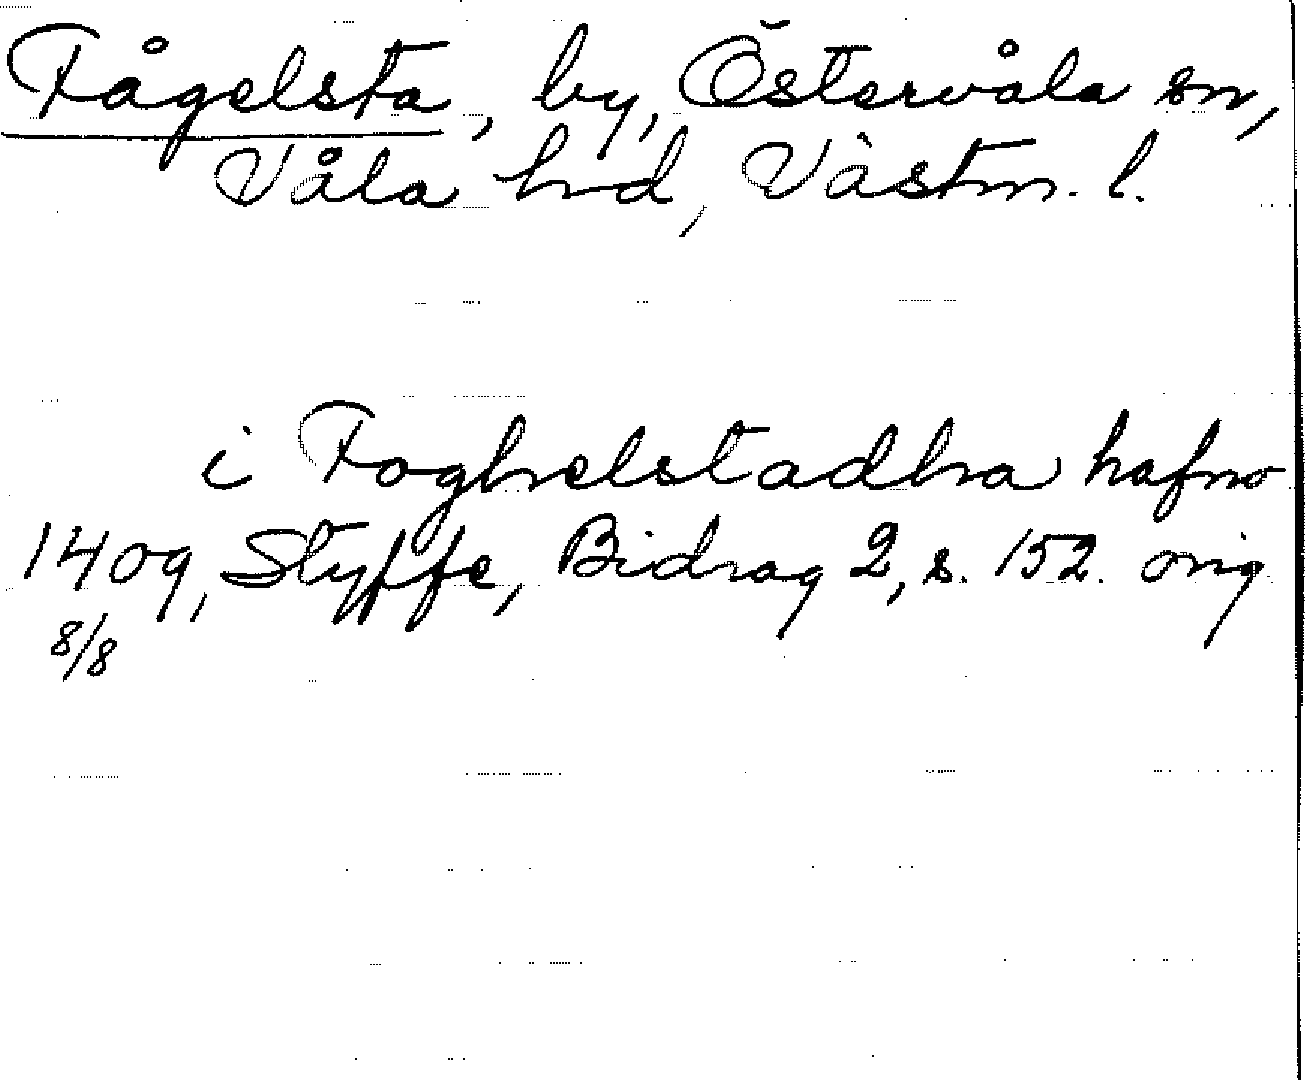 Fågelsta, by, Östervåla sn,
Våla hd, Västm. l.
i Foghelstadha hafno
1409, Styffe, Bidrag 2, s. 152. orig
8/8